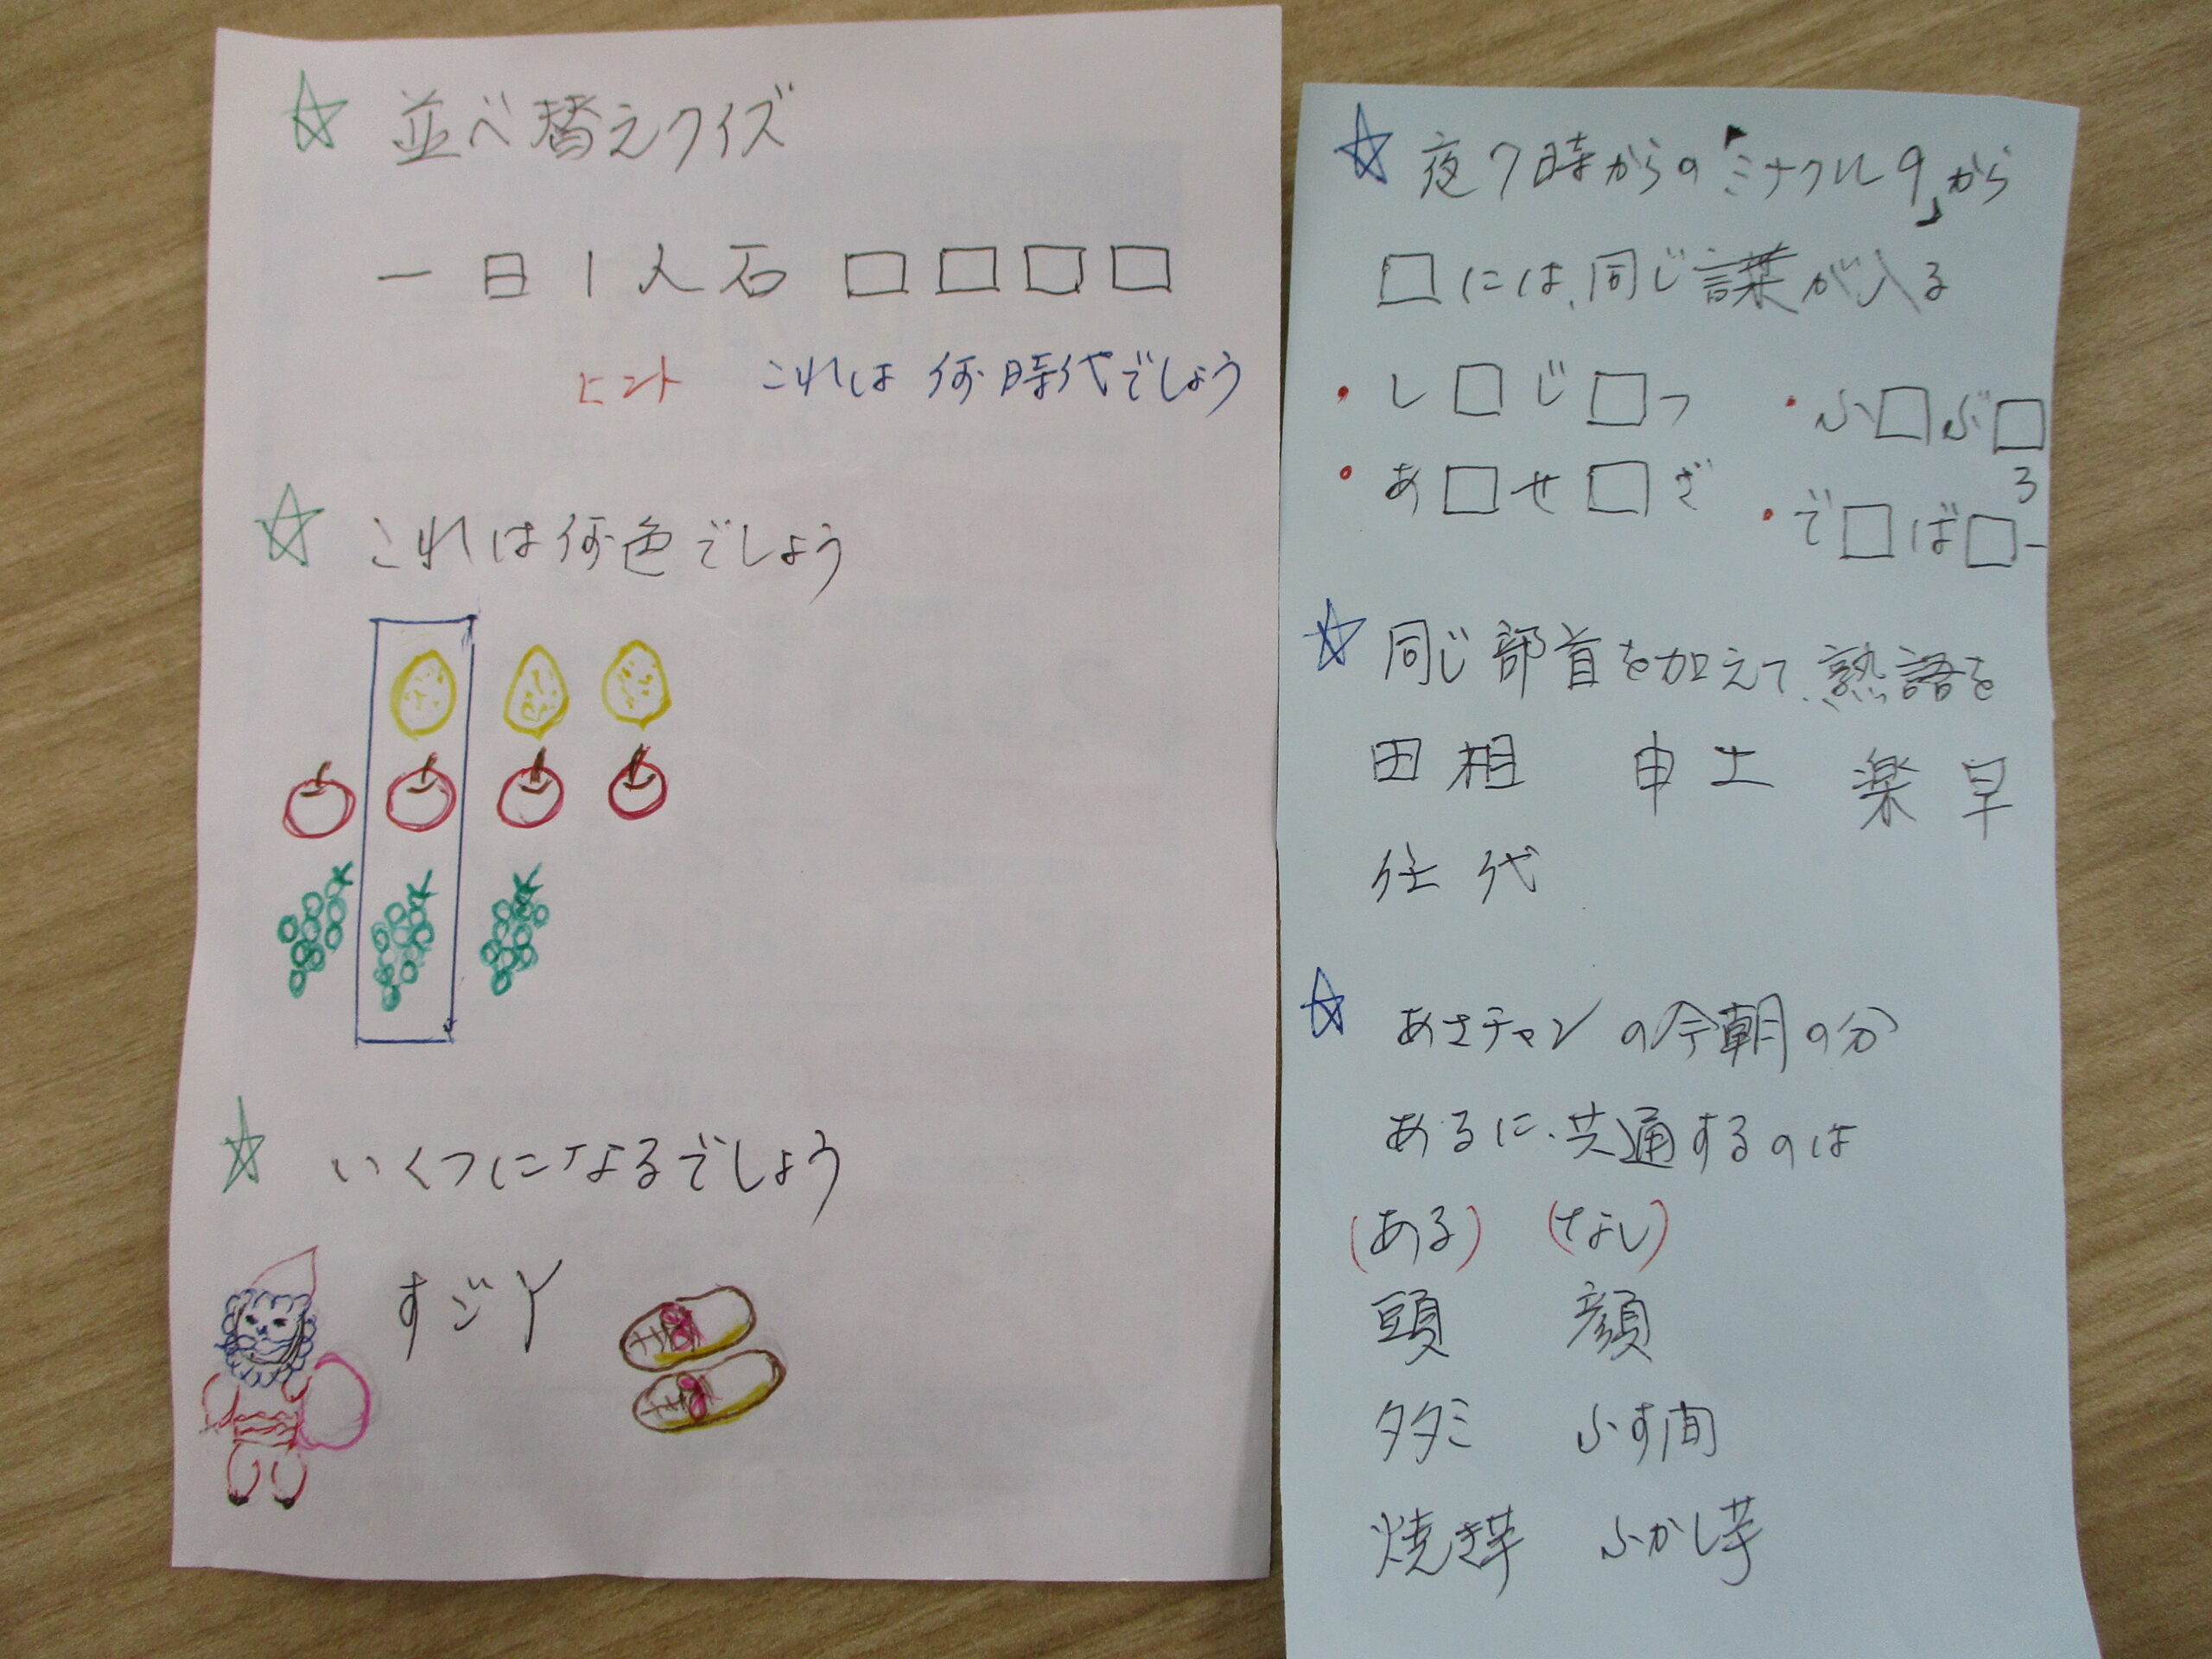 並べ替えクイズ
一日1人石 □□□□
ヒント これは何時代でしょう
これは何色でしょう
いくつになるでしょう
すごY
夜7時からの「ミナクル9」から
□には、同じ言葉が入る
・し□じ□つ ・ふ□ぶ□ろ
・あ□せ□ぎ ・で□ば□ー
同じ部首を加えて、熟語を
田相 申土 楽早
任代
あさチャンの今朝の分
あるに、共通するのは
(ある) (なし)
頭 顔
タタミ ふす間
焼き芋 ふかし芋